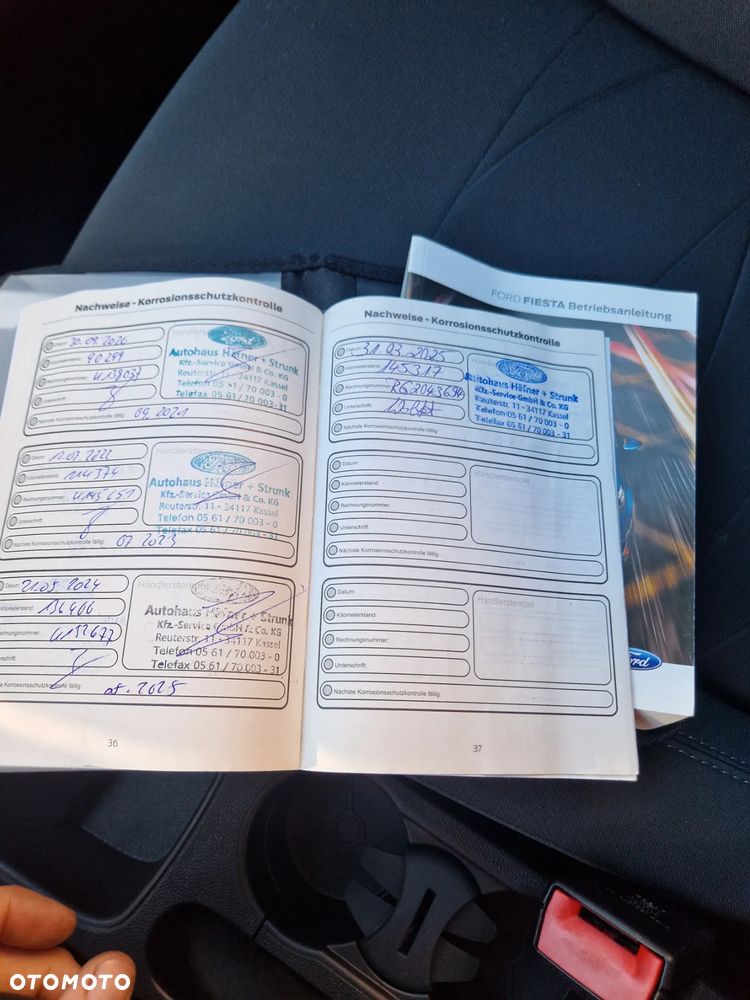 FORD FIESTA Betriebsanleitung
Nachweise - Korrosionsschutzkontrolle
Datum: 30.09.2020
Händlerstempel
Ford
Kilometerstand: 90299
Autohaus Häfner + Strunk
Kfz.-Service GmbH & Co. KG
Rechnungsnummer: 4139037
Reuterstr. 11 · 34117 Kassel
Telefon 05 61 / 70 003 - 0
Unterschrift:
Telefax 05 61 / 70 003 - 31
Nächste Korrosionsschutzkontrolle fällig: 09.2021
Datum:
Ford
Kilometerstand: 114374
Autohaus Häfner + Strunk
Kfz.-Service GmbH & Co. KG
Rechnungsnummer:
Reuterstr. 11 · 34117 Kassel
Telefon 05 61 / 70 003 - 0
Unterschrift:
Telefax 05 61 / 70 003 - 31
Nächste Korrosionsschutzkontrolle fällig: 07 2023
Datum: 21.05.2024
Händlerstempel
Kilometerstand: 136466
Autohaus Häfner + Strunk
Kfz.-Service GmbH & Co. KG
Rechnungsnummer: 4152677
Reuterstr. 11 · 34117 Kassel
Telefon 05 61 / 70 003 - 0
Unterschrift:
Telefax 05 61 / 70 003 - 31
Nächste Korrosionsschutzkontrolle fällig: 2025
36
Nachweise - Korrosionsschutzkontrolle
Datum: 31.03.2025
Ford
Kilometerstand: 145317
Autohaus Häfner + Strunk
Kfz.-Service GmbH & Co. KG
Rechnungsnummer: RG2043694
Reuterstr. 11 · 34117 Kassel
Telefon 05 61 / 70 003 - 0
Unterschrift:
Telefax 05 61 / 70 003 - 31
Nächste Korrosionsschutzkontrolle fällig:
Datum:
Händlerstempel
Kilometerstand:
Rechnungsnummer:
Unterschrift:
Nächste Korrosionsschutzkontrolle fällig:
Datum:
Händlerstempel
Kilometerstand:
Rechnungsnummer:
Unterschrift:
Nächste Korrosionsschutzkontrolle fällig:
37
Ford
OTOMOTO